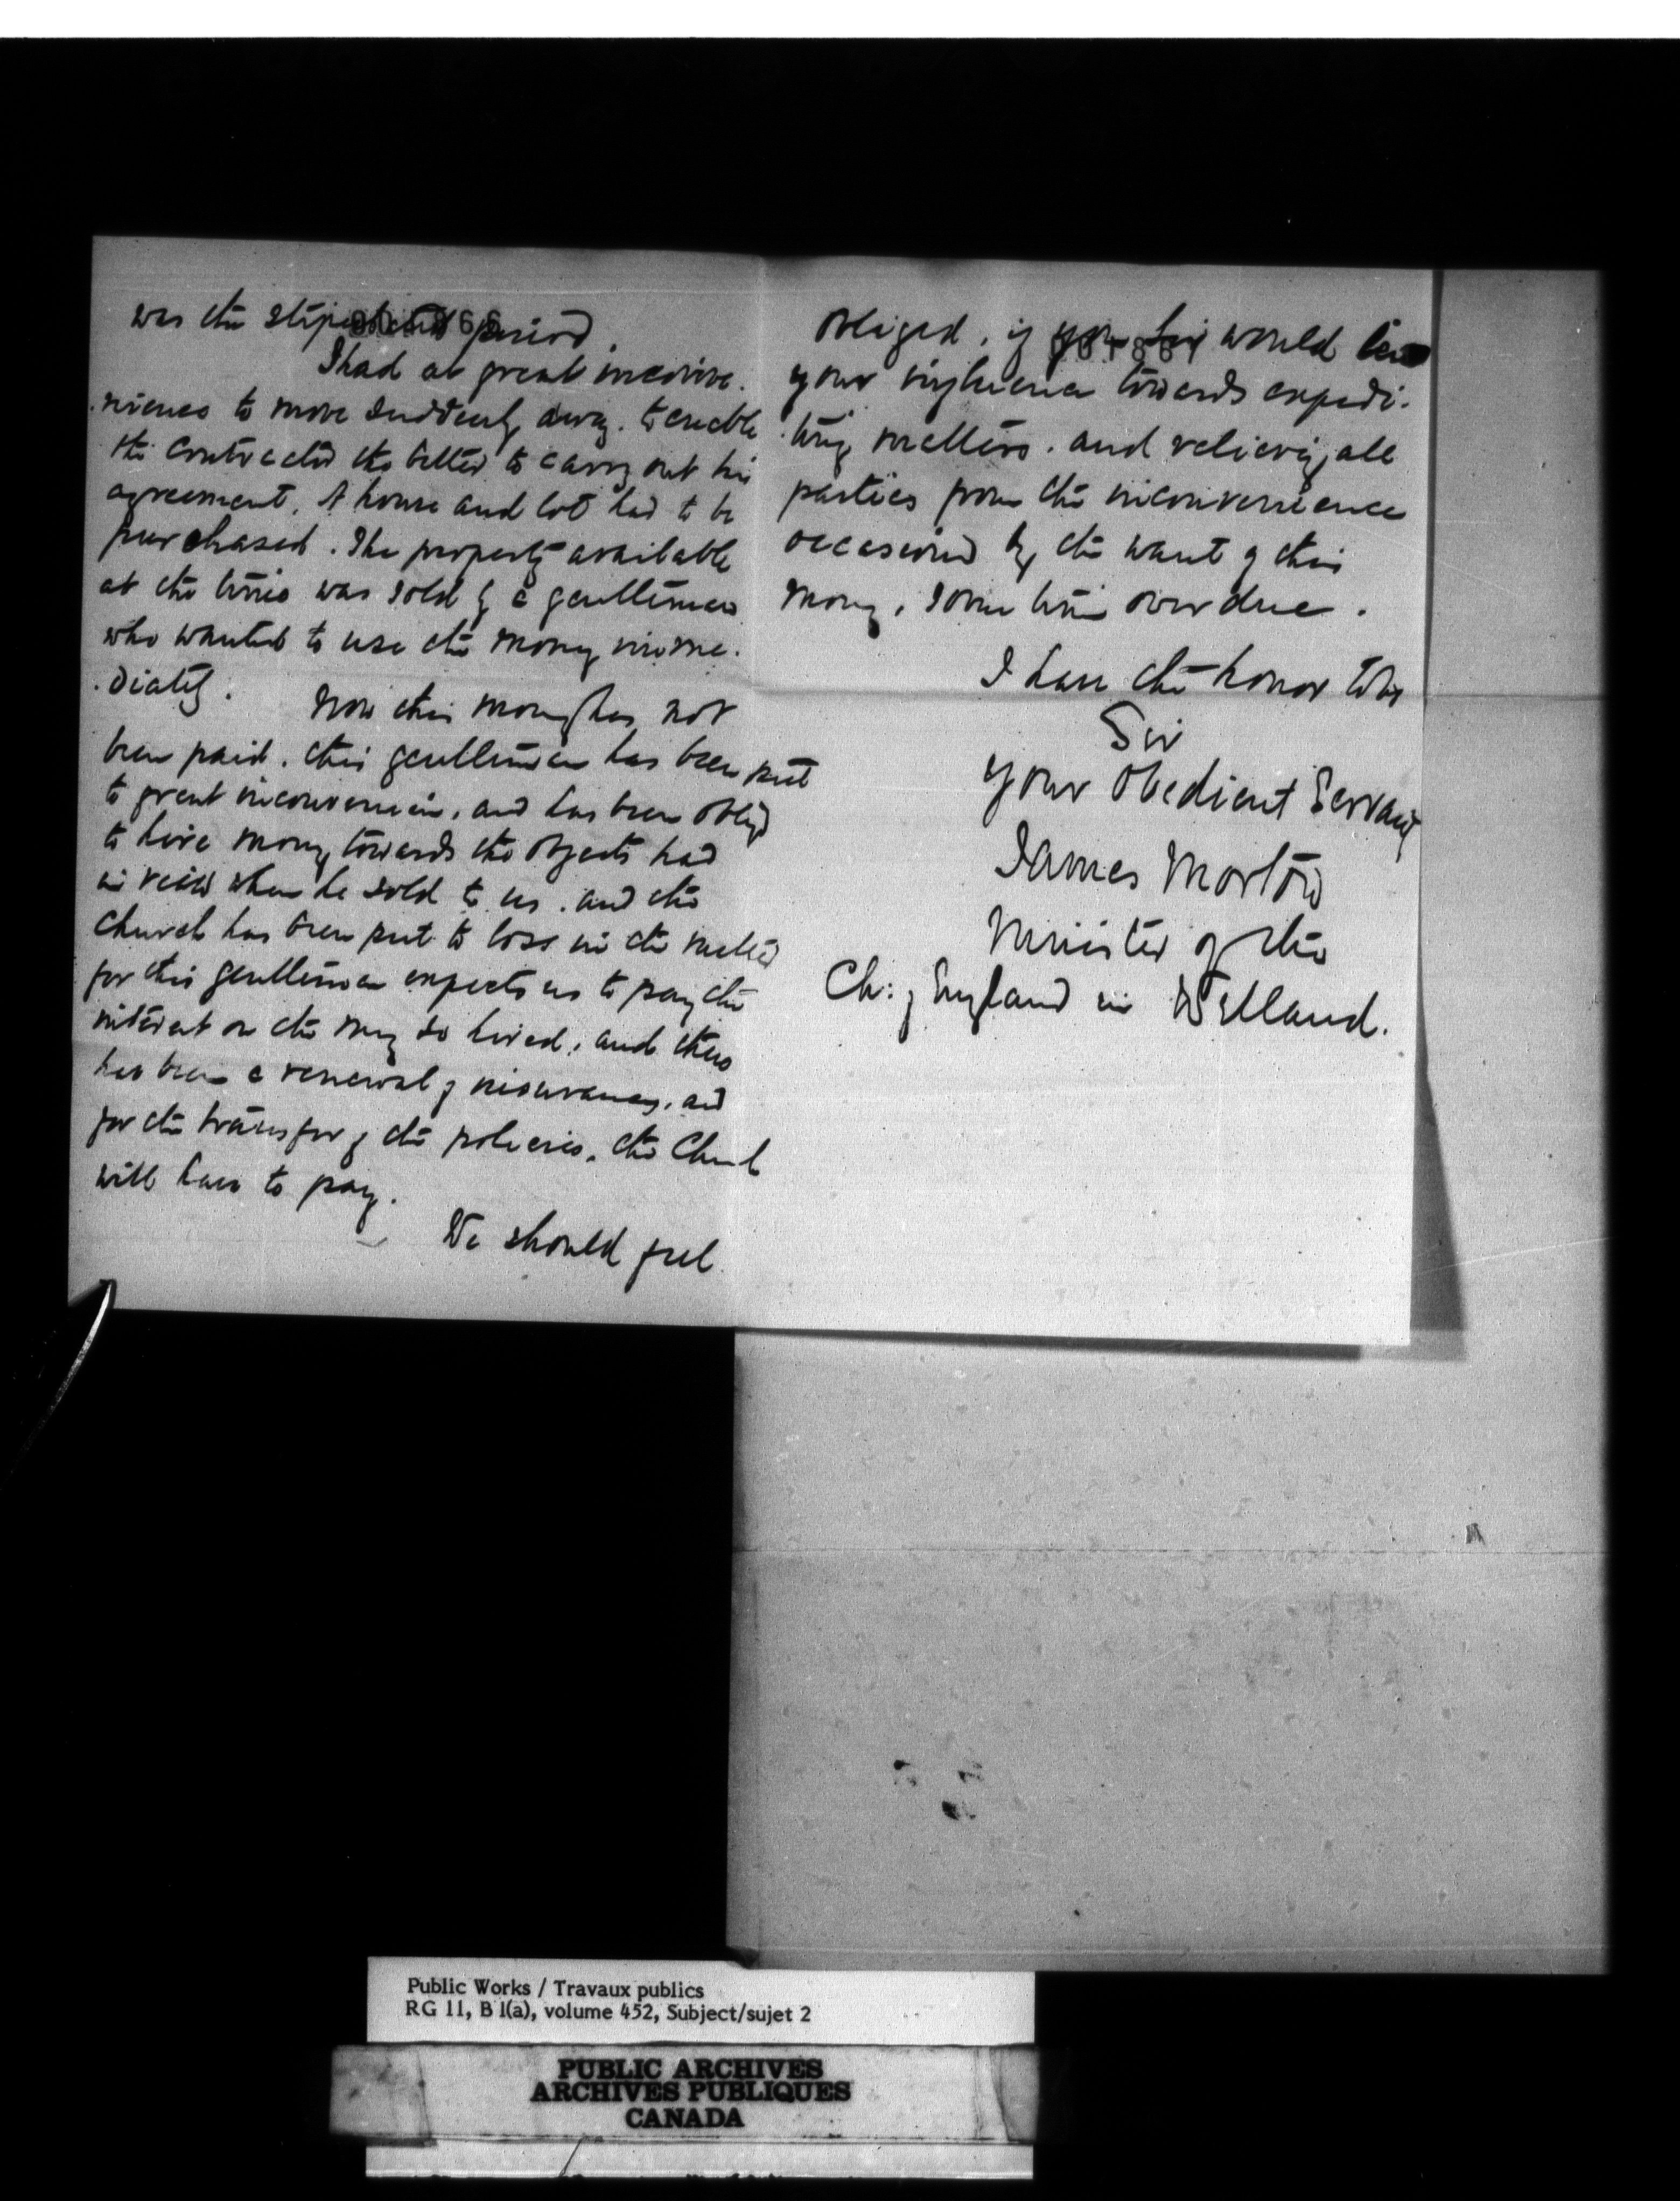 was the stipulated period.
I had at great inconve-
-nience to move suddenly away. to enable
the contractor the better to carry out his
agreement. A house and lot had to be
purchased. The property available
at the time was sold by a gentleman
who wanted to use the money imme-
-diately. Now this money has not
been paid. this gentleman has been put
to great inconvenience, and has been obliged
to hire money towards the objects had
in view when he sold to us. and the
Church has been put to loss in the matter
for this gentleman expects us to pay the
interest on the money so hired, and there
has been a renewal of insurances, and
for the transfer of the policies, the Church
will have to pay.
We should feel
obliged, if you Sir would
your influence towards expedi-
-ting matters. and relieving all
parties from the inconvenience
occasioned by the want of this
money, some time overdue.
I have the honor to be
Sir
your Obedient Servant
James Morton
Minister of the
Ch: of England in Welland.
Public Works / Travaux publics
RG 11, B 1(a), volume 452, Subject/sujet 2
PUBLIC ARCHIVES
ARCHIVES PUBLIQUES
CANADA